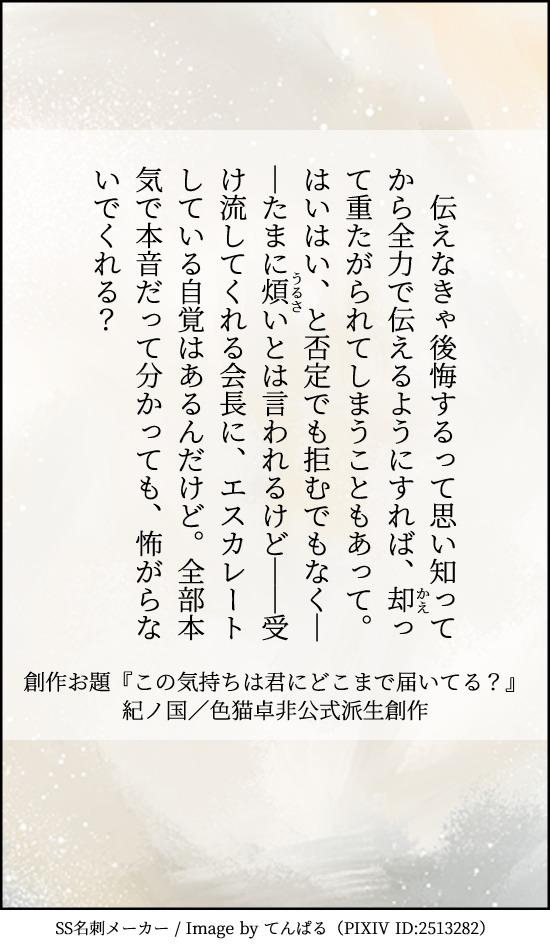 伝えなきゃ後悔するって思い知って
から全力で伝えるようにすれば、却っ
て重たがられてしまうこともあって。
はいはい、と否定でも拒むでもなく―
―たまに煩いとは言われるけど――受
け流してくれる会長に、エスカレート
している自覚はあるんだけど。全部本
気で本音だって分かっても、怖がらな
いでくれる？
かえ
うるさ
創作お題『この気持ちは君にどこまで届いてる？』
紀ノ国／色猫卓非公式派生創作
SS名刺メーカー / Image by てんぱる（PIXIV ID:2513282）